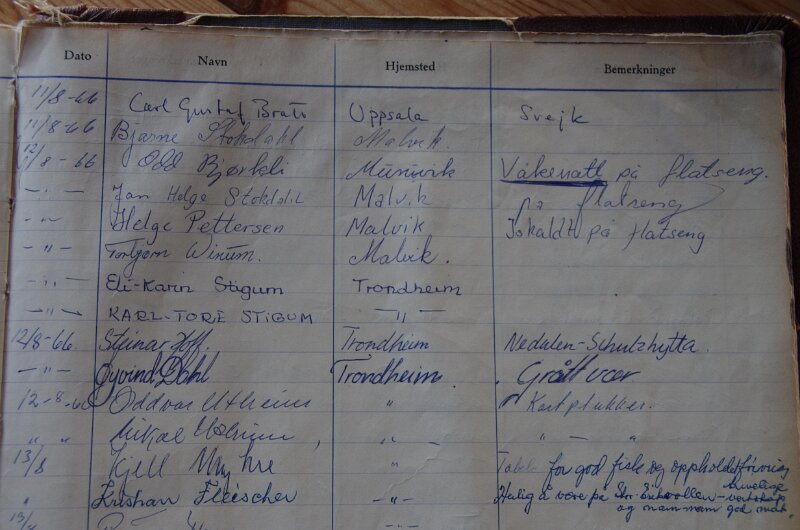 Dato Navn Hjemsted Bemerkninger
11/8-66 Carl Gustaf Uppsala Svejk
11/8-66 Bjarne Stokdahl Malvik.
12/8-66 Odd Bjørkli Våkenatt på flatseng.
— " — Jan Helge Stokdahl Malvik på flatseng
— " — Helge Pettersen Malvik Iskaldt på flatseng
— " — Torbjørn Malvik.
— " — Eli-Karin Stigum Trondheim
— " — KARL-TORE STIGUM — " —
12/8-66 Steinar Hoff. Trondheim Nedalen-Schulzhytta.
— " — Øyvind Dahl Trondheim. Grått vær
12-8-66 Oddvar " Kartplukker.
" " Mikal " — " — "
13/8 Kjell Myhre " for god fisk og
" Kristian Fleischer — " — Herlig å være på
og mam-mam god mat.